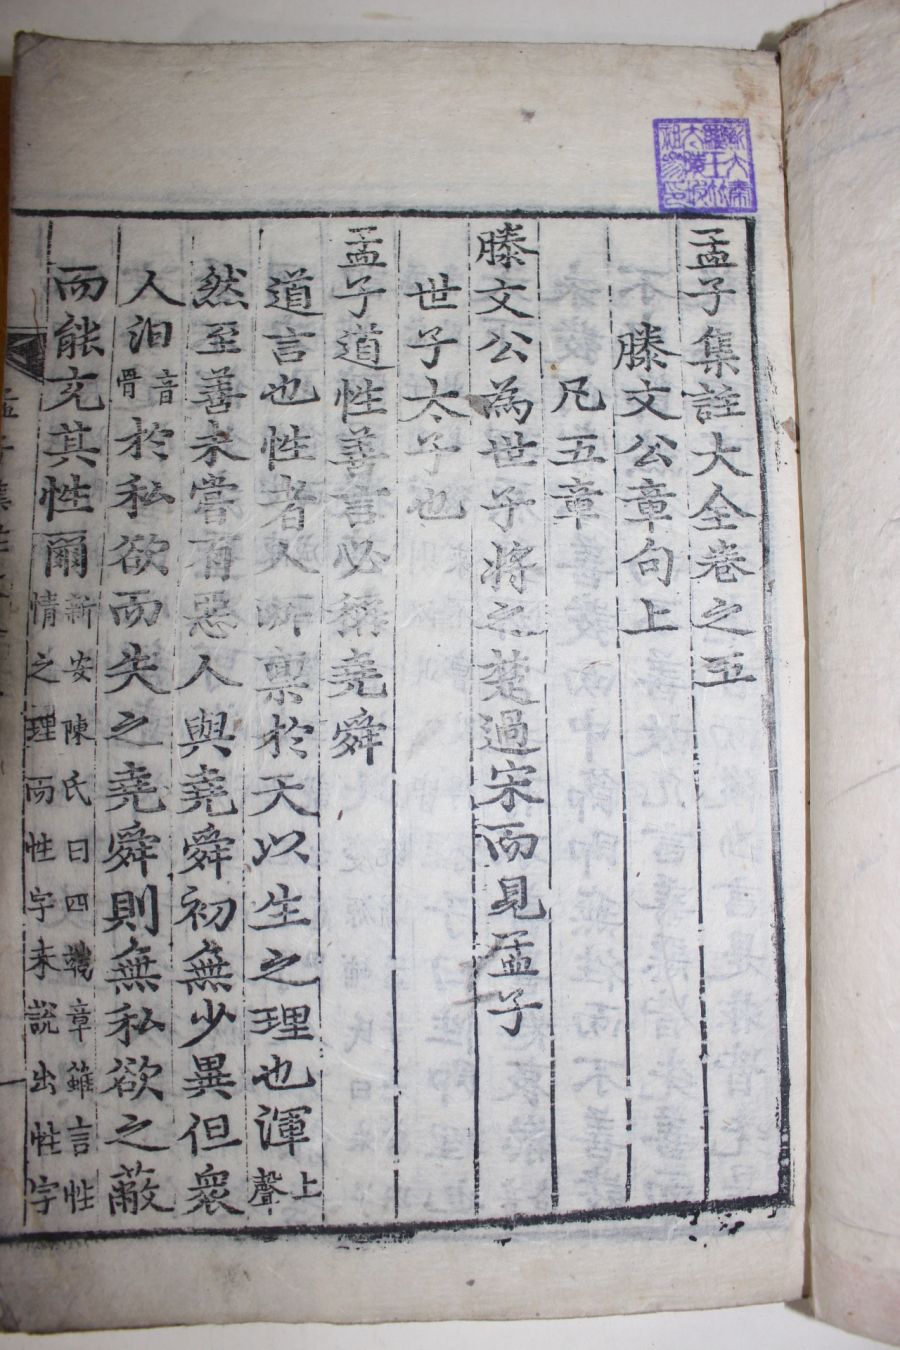 孟子集註大全卷之五
滕文公章句上
凡五章
滕文公為世子將之楚過宋而見孟子
世子太子也
孟子道性善言必稱堯舜
道言也性者人所稟於天以生之理也渾上聲
然至善未嘗有惡人與堯舜初無少異但衆
人汩音骨於私欲而失之堯舜則無私欲之蔽
而能充其性爾新安陳氏曰四端章雖言性
情之理而性字未說出性字